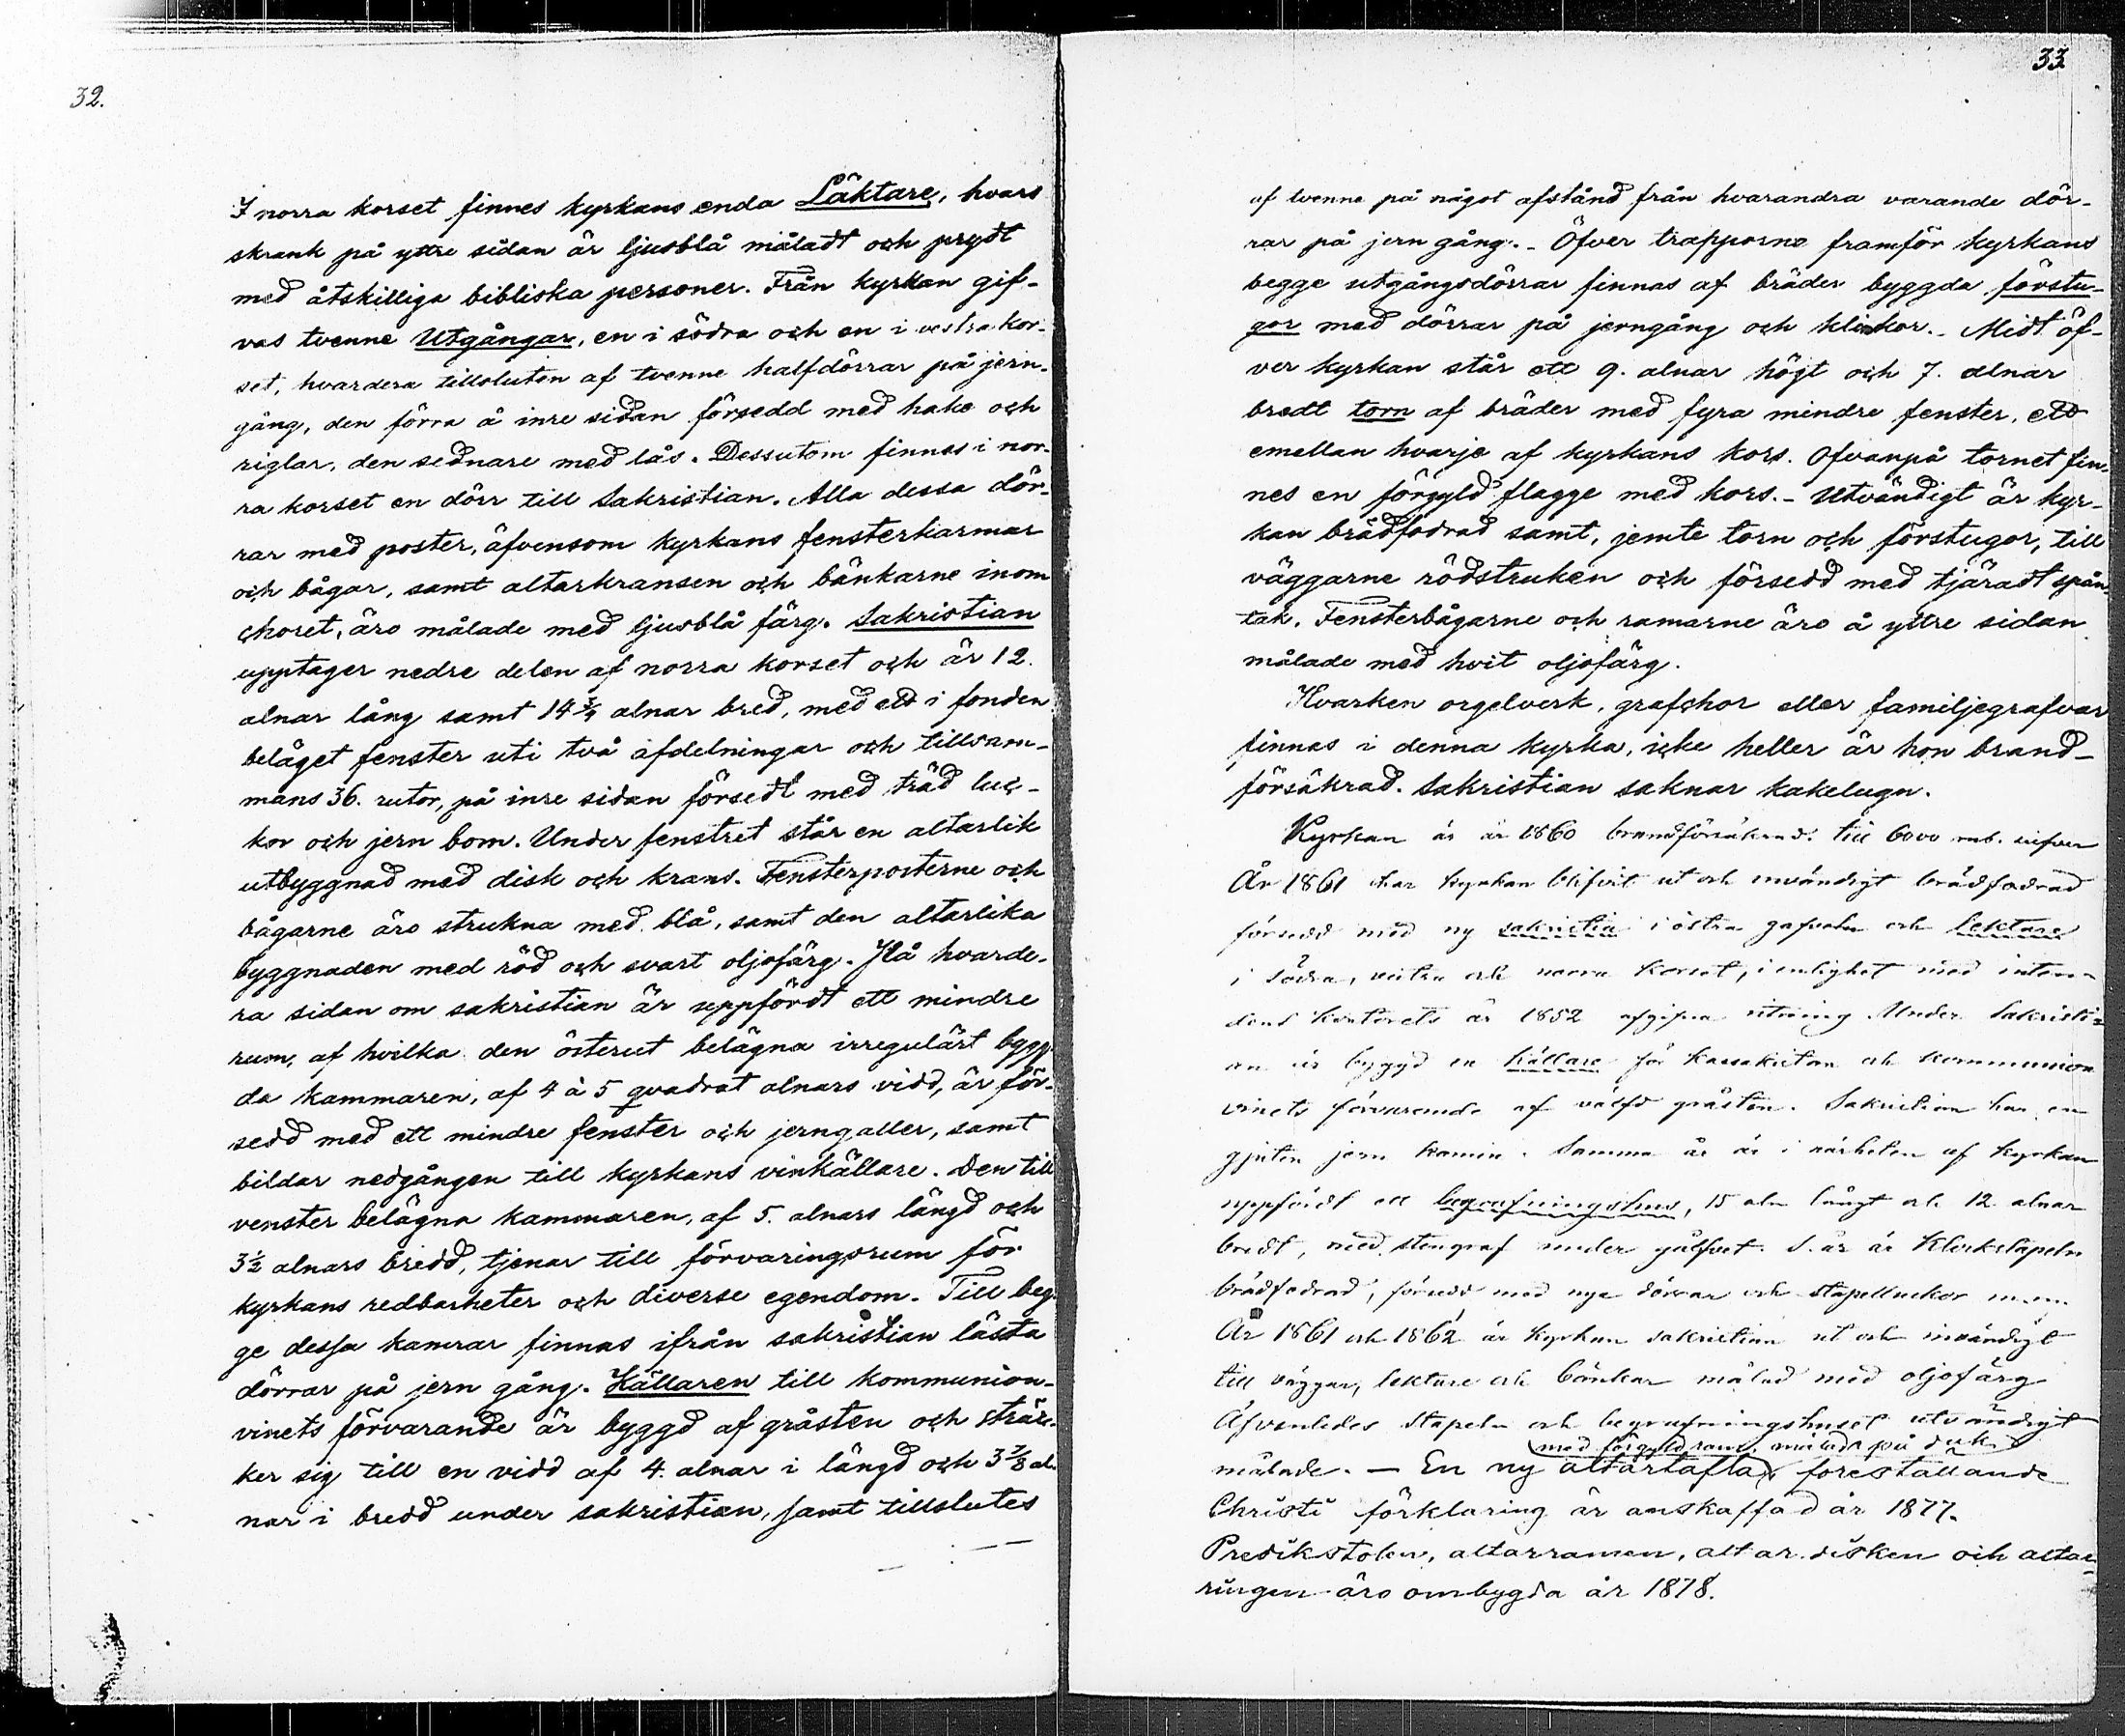 32.
I norra korset finnes kyrkans enda Läktare, hvars
skrank på yttre sidan är ljusblå måladt och prydt
med åtskilliga bibliska personer. Från kyrkan gif-
vas tvenne Utgångar, en i södra och en i vestra kor-
set, hvardera tillsluten af tvenne halfdörrar på jern-
gång, den förra å inre sidan försedd med hake och
riglar, den sednare med lås. Dessutom finnes i nor-
ra korset en dörr till Sakristian. Alla dessa dör-
rar med poster, äfvensom kyrkans fensterkarmar
och bågar, samt altarkransen och bänkarne inom
choret, äro målade med ljusblå färg. Sakristian
upptager nedre delen af norra korset och är 12.
alnar lång samt 14 3/4 alnar bred, med ett i fonden
beläget fenster uti två afdelningar och tillsam-
mans 36. rutor, på inre sidan försedt med träd luc-
kor och jern bom. Under fenstret står en altarlik
utbyggnad med disk och krans. Fensterposterne och
bågarne äro strukna med blå, samt den altarlika
byggnaden med röd och svart oljofärg. På hvarde-
ra sidan om sakristian är uppfördt ett mindre
rum, af hvilka den österut belägna irregulärt bygg-
da kammaren, af 4 à 5 qvadrat alnars vidd, är för-
sedd med ett mindre fenster och jerngaller, samt
bildar nedgången till kyrkans vinkällare. Den till
venster belägna kammaren, af 5. alnars längd och
3½ alnars bredd, tjenar till förvaringsrum för
kyrkans redbarheter och diverse egendom. Till beg-
ge dessa kamrar finnas ifrån sakristian låsta
dörrar på jern gång. Källaren till kommunion-
vinets förvarande är byggd af gråsten och sträc-
ker sig till en vidd af 4. alnar i längd och 3 7/8 al-
nar i bredd under sakristian, samt tillslutes
33
af tvenne på något afstånd från hvarandra varande dör-
rar på jern gång. - Öfver trapporna framför kyrkans
begge utgångsdörrar finnas af bräder byggda förstu-
gor med dörrar på jerngång och klinkor. - Midt öf-
ver kyrkan står ett 9. alnar högt och 7. alnar
bredt torn af bräder med fyra mindre fenster, ett
emellan hvarje af kyrkans kors. Ofvanpå tornet fin-
nes en förgyld flagge med kors. - Utvändigt är kyr-
kan brädfodrad samt, jemte torn och förstugor, till
väggarne rödstruken och försedd med tjäradt spån-
tak. Fensterbågarne och ramarne äro å yttre sidan
målade med hvit oljofärg.
Hvarken orgelverk, grafchor eller familjegrafvar
finnas i denna kyrka, icke heller är hon brand-
försäkrad. Sakristian saknar kakelugn.
Kyrkan är år 1860 brandförsäkrad till 6000 rub. silfver
År 1861 har kyrkan blifvit ut och invändigt brädfodrad
försedd med ny sakristia i östra gafveln och lektare
i södra, vestra och norra korset, i enlighet med inten-
dents kontorets år 1852 afgifna ritning Under Sakristi-
an är byggd en källare för kassakistan och kommunion
vinets förvarande af välfd gråsten. Sakristian har en
gjuten jern kamin. Samma år är i närheten af kyrkan
uppfördt ett begrafningshus, 15 aln långt och 12 alnar
bredt, med stengraf under golfvet. S. år är Klockstapeln
brädfodrad, försedd med nya dörrar och stapelluckor m.m.
År 1861 och 1862 är kyrkan sakristian ut och invändigt
till väggar, lektare och bänkar målad med oljofärg
Äfvenledes stapeln och begrafningshuset utvändigt
med förgyld ram, målade på duk
målade. — En ny altartafla, föreställande
Christi förklaring är anskaffad år 1877.
Predikstolen, altarramen, altar disken och altar-
ringen äro ombygda år 1878.